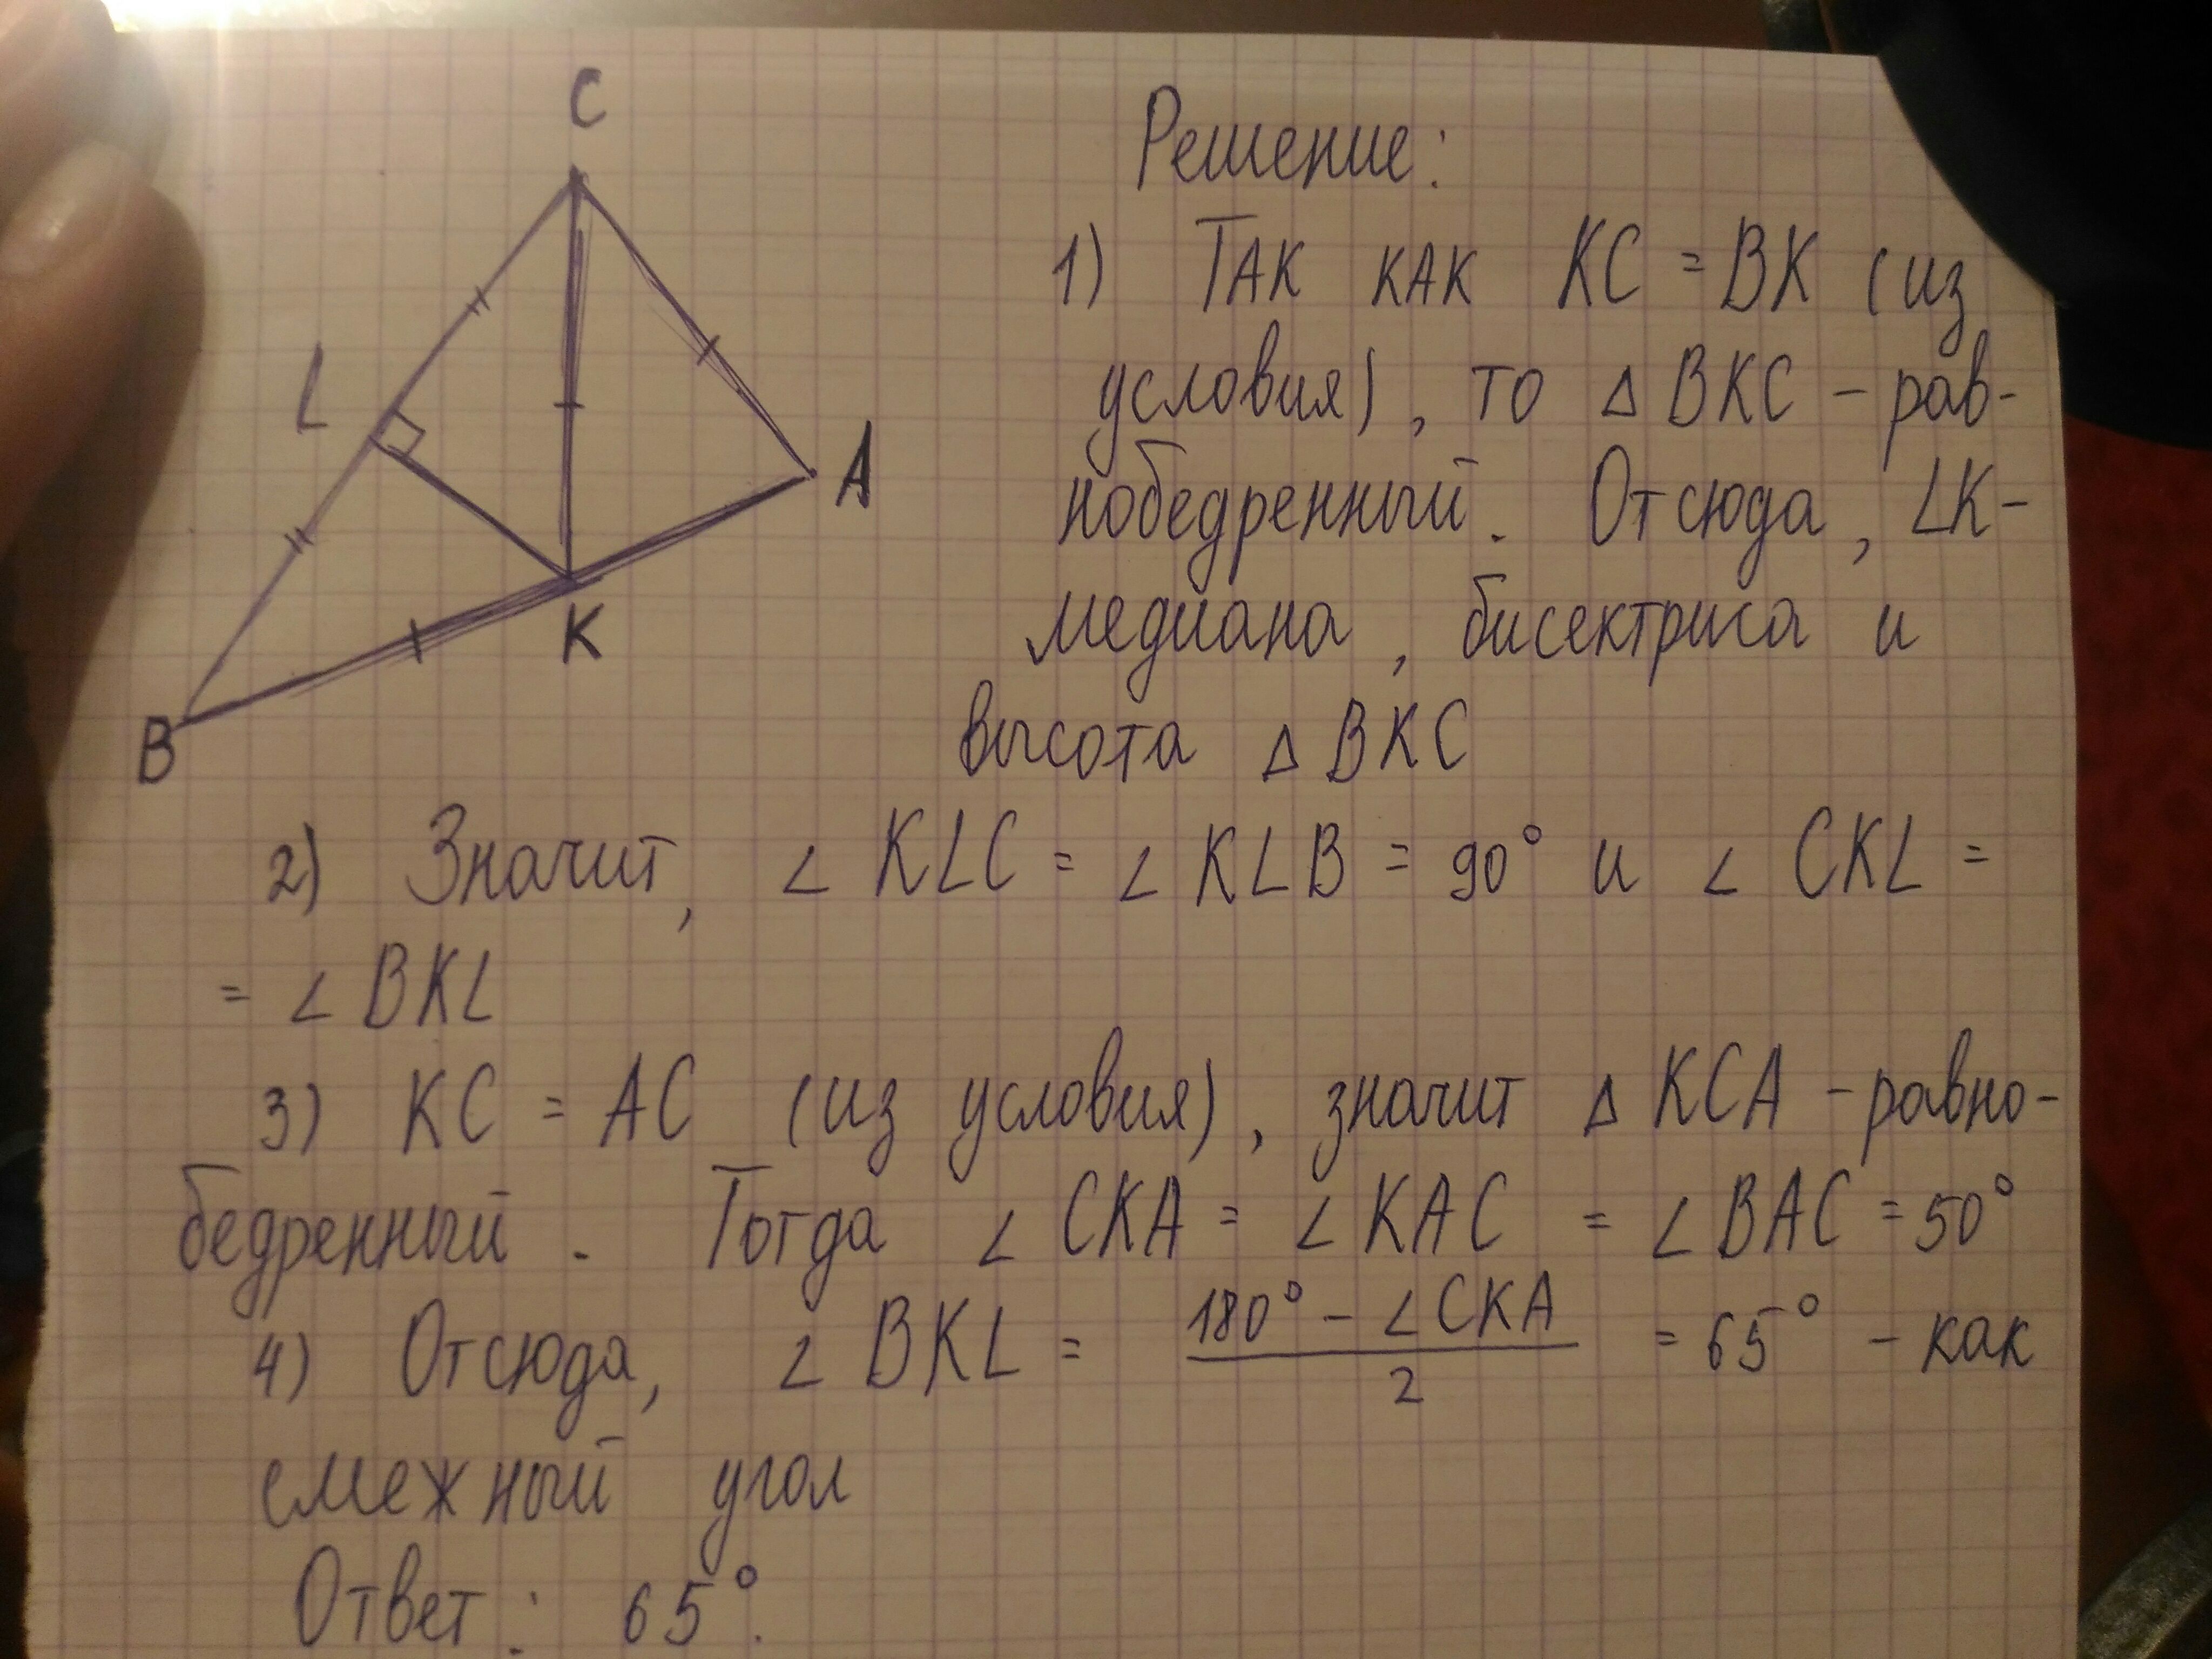 C
L
A
K
B
Решение:
1) Так как KC = BK (из
условия), то △ BKC - рав-
нобедренный. Отсюда, LK -
медиана, бисектриса и
высота △ BKC
2) Значит, ∠ KLC = ∠ KLB = 90° и ∠ CKL =
= ∠ BKL
3) KC = AC (из условия), значит △ KCA - равно-
бедренный. Тогда ∠ CKA = ∠ KAC = ∠ BAC = 50°
4) Отсюда, ∠ BKL = (180° - ∠ CKA) / 2 = 65° - как
смежный угол
Ответ: 65°.